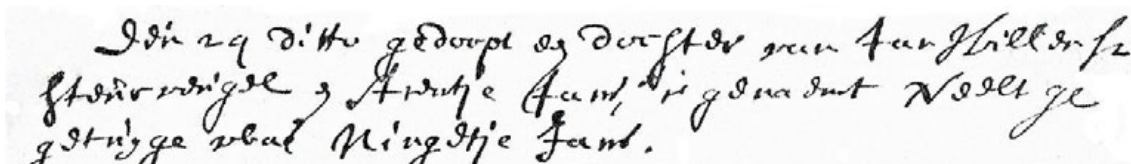 Den 29 ditto gedoopt en dochter van Jan Willemsz
Steūrvengel en Arentje Jans, is genaemt Neeltge
getuyge was Ningetje Jans.